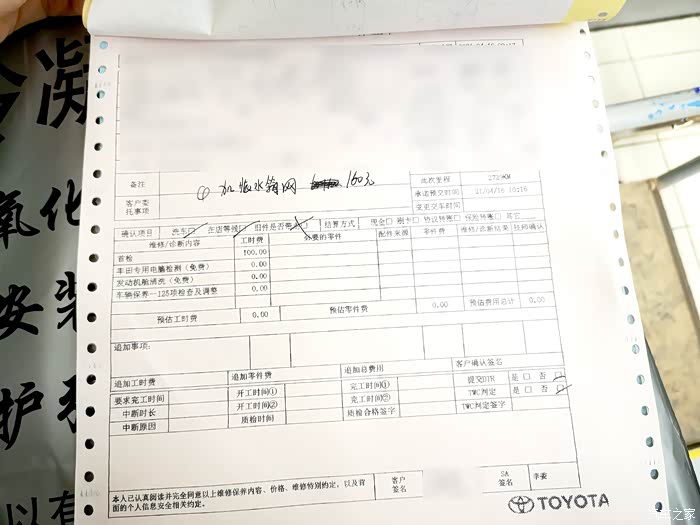 凝
氧化
安装
护
以有
备注
① 加装水箱网 160元
此次里程 2729KM
客户委托事项
承诺预交时间 21/04/16 10:16
变更交车时间
确认项目 洗车□ 在店等候□ 旧件是否带 结算方式 现金□ 刷卡□ 协议转账□ 保险转账□ 其它
维修/诊断内容 工时费 必要的零件 配件来源 零件费 维修/诊断结果 技师确认
首检 100.00
丰田专用电脑检测（免费） 0.00
发动机舱清洗（免费） 0.00
车辆保养--125项检查及调整 0.00
预估工时费 0.00 预估零件费 0.00 预估费用总计 0.00
追加事项:
追加工时费 追加零件费 追加总费用 客户确认签名
要求完工时间 开工时间① 完工时间① 提交DTR 是 □ 否 □
中断时长 开工时间② 完工时间② TWC判定 是 □ 否 □
中断原因 质检时间 质检合格签字 TWC判定签字
本人已认真阅读并完全同意以上维修保养内容、价格、维修特别约定，以及背
面的个人信息安全相关约定。
客户签名
SA签名
李姿
TOYOTA
汽车之家